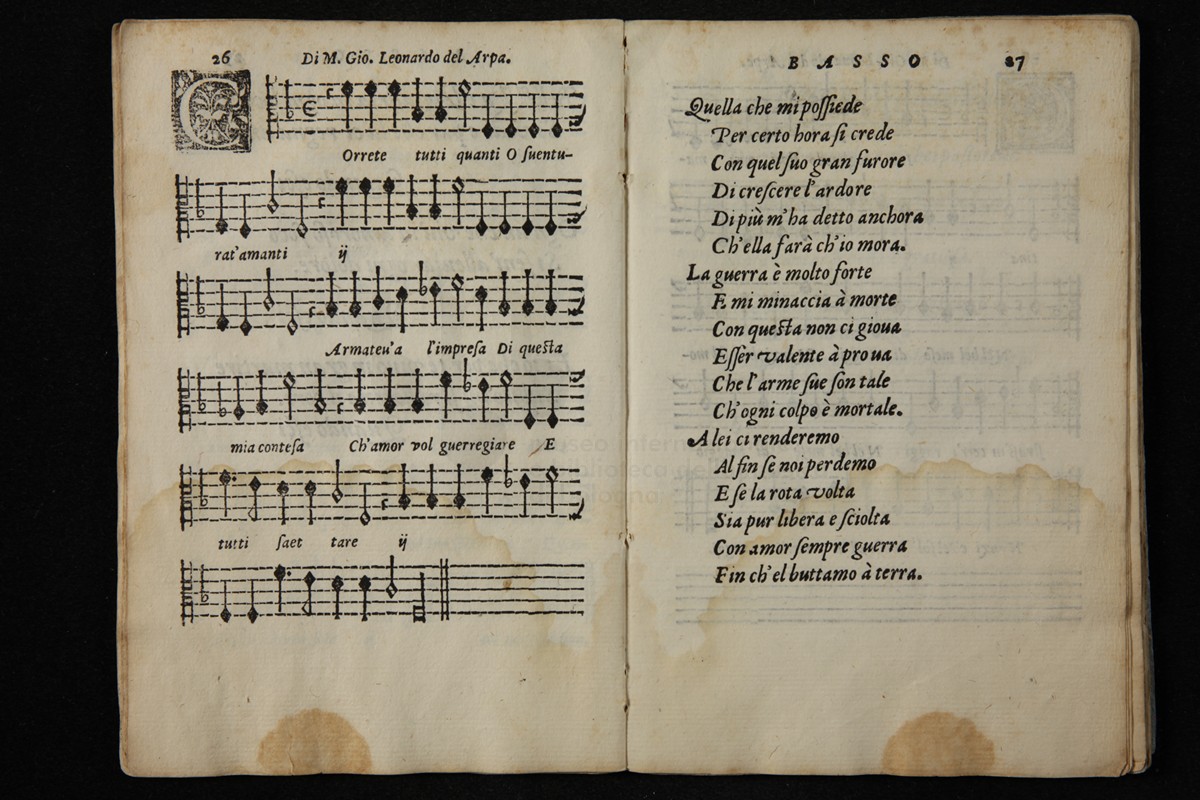 26
Di M. Gio. Leonardo del Arpa.
C
Orrete tutti quanti O ſuentu-
rat'amanti ij
Armateu'a l'impreſa Di queſta
mia conteſa Ch'amor vol guerregiare E
tutti ſaet tare ij
BASSO 27
Quella che mi poſſiede
Per certo hora ſi crede
Con quel ſuo gran furore
Di creſcere l'ardore
Di più m'ha detto anchora
Ch'ella farà ch'io mora.
La guerra è molto forte
E mi minaccia à morte
Con queſta non ci gioua
Eſſer valente à proua
Che l'arme ſue ſon tale
Ch'ogni colpo è mortale.
A lei ci renderemo
Al fin ſe noi perdemo
E ſe la rota volta
Sia pur libera e ſciolta
Con amor ſempre guerra
Fin ch'el buttamo à terra.